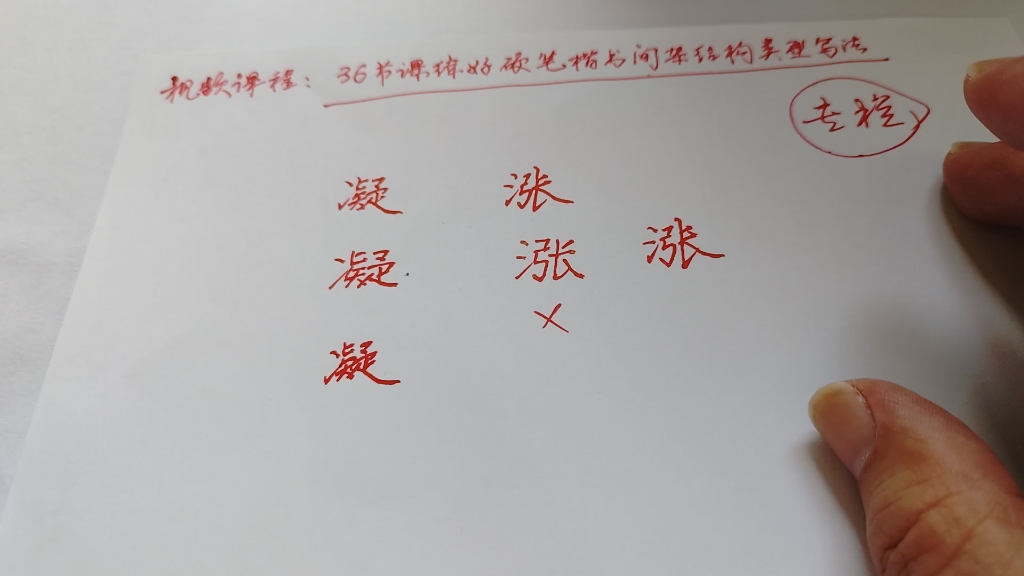 视频课程：36节课练好硬笔楷书间架结构类型写法
专栏
凝 涨
凝 涨 涨
×
凝